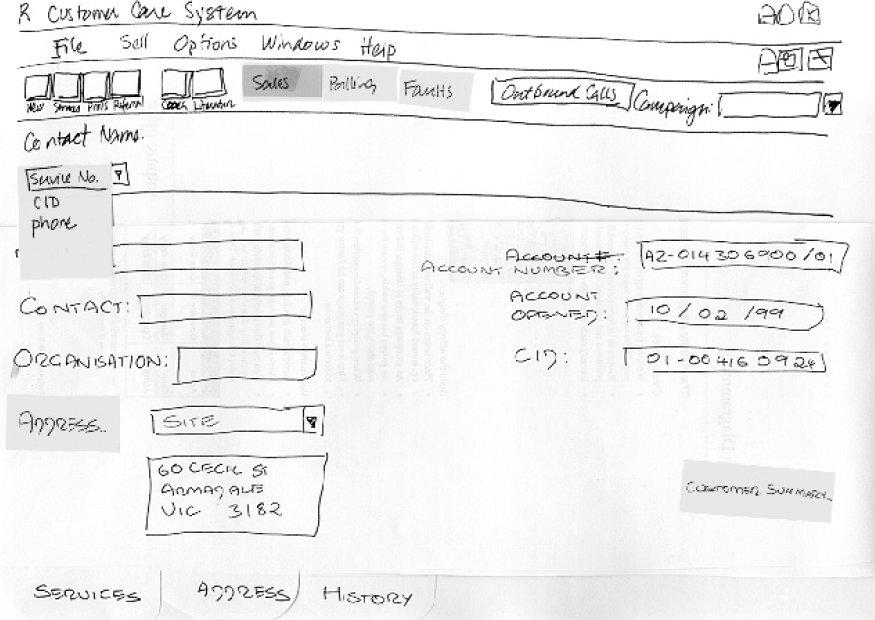 R Customer Care System
File Sell Options Windows Help
New Services Prods Referral Coach Literature Sales Billing Faults Outbound Calls Campaign:
Contact Name.
Service No.
CID
phone
ACCOUNT#:
ACCOUNT NUMBER: A2-014306900/01
CONTACT: ACCOUNT OPENED: 10/02/99
ORGANISATION: CID: 01-00416 0924
ADDRESS.. SITE
60 CECIL St
ARMADALE
VIC 3182
CUSTOMER SUMMARY..
SERVICES ADDRESS HISTORY